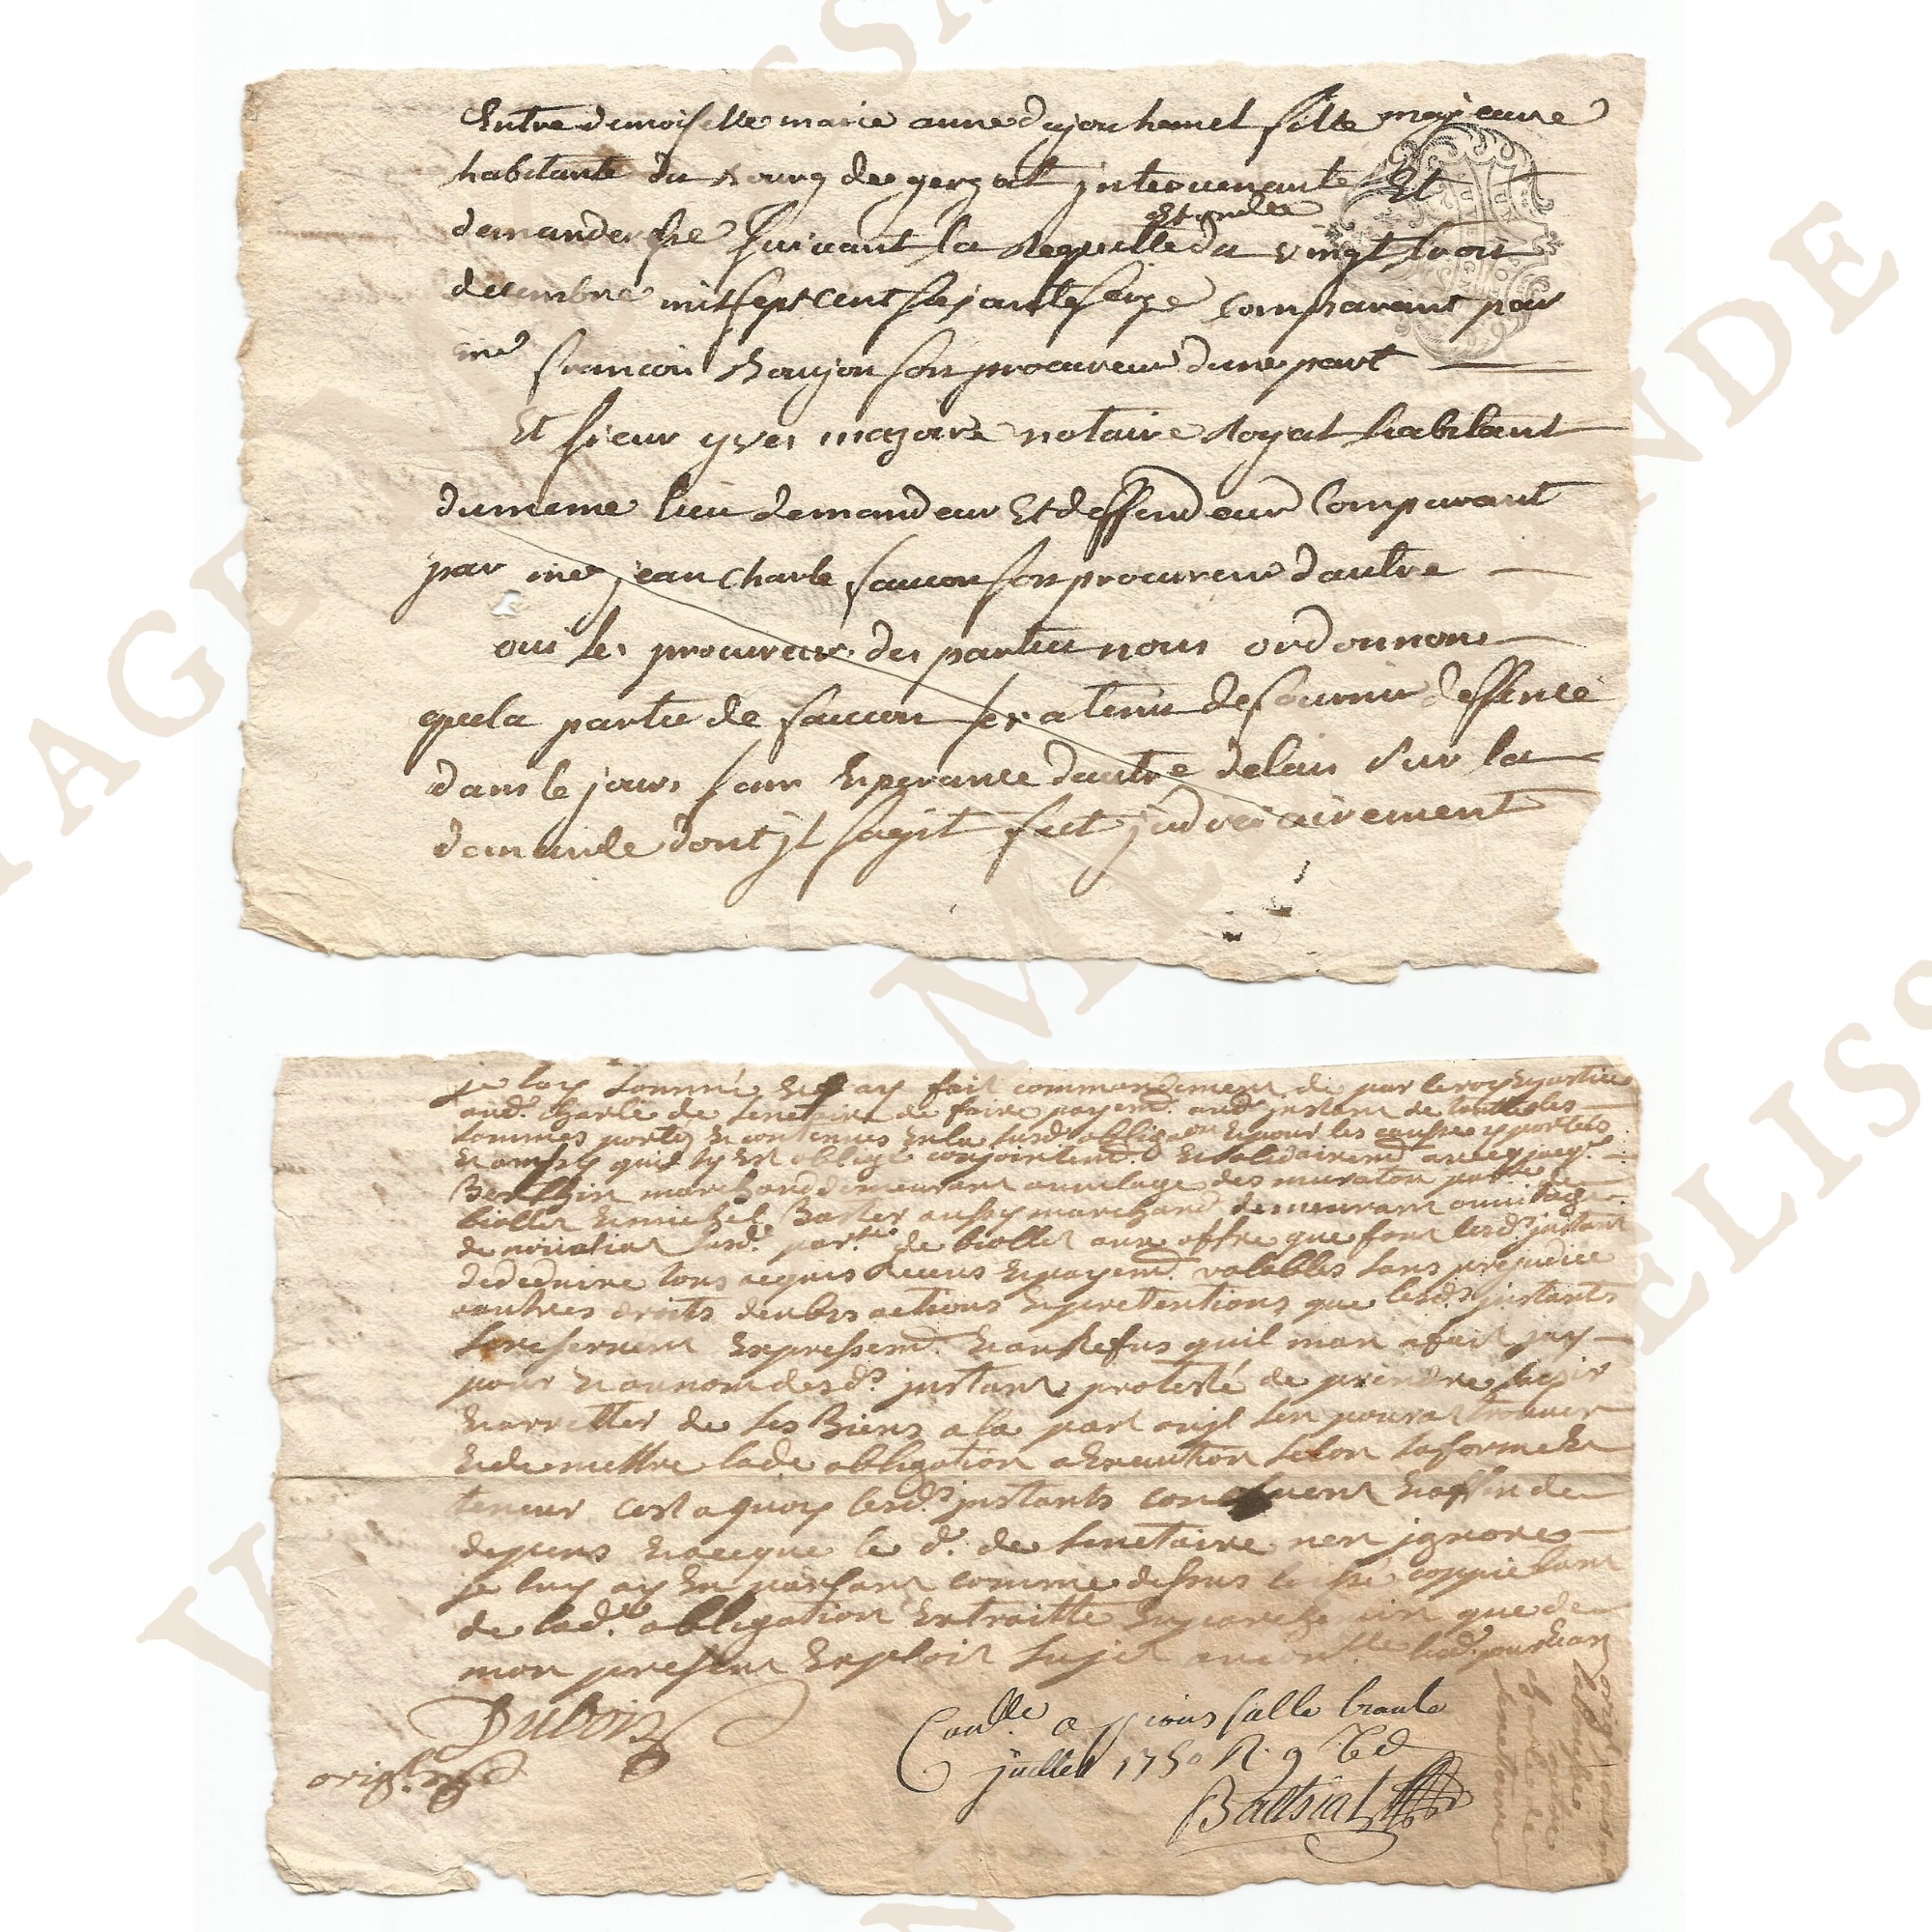 Entre demoiselle marie anne dujouhannel fille majeure
habitante du bourg de gerzat intervenante Et
demanderesse suivant la requette du vingt trois
decembre mil sept cent soixante seize comparant par
me francois Boujon son procureur dune part
Et sieur yves mazoire notaire royal habitant
du meme lieu demandeur Et deffendeur comparant
par me jean charle saucon son procureur dautre
oui les procureur des parties nous ordonnons
que la partie de saucon sera tenu de fournir deffence
dans le jours sans Esperance dautre delais sur la
demande dont jl sagit fait judiciairement
je luy sommé Et ay fait commandement de par le roy Et justice
aud. charle de senetaire de faire payemt. aud. jnstant de toutte les
sommes portés Et contenues En la susd. obligaon Et pour les causse y portés
Et ainssy quil sy Est obligé conjointemt. Et solidairemt avecq jacq.
Berthin marchand demeurant au vilage des muraton parsse de
biollet Et michel Baster aussy marchand demeurant au vilage
de susd. parsse de biollet aux offre que font lesd. jnstant
de deduire tous acquis recues Et payemt. valables sans prejudice
autres droits deubs actions Et pretentions que lesd. jnstants
se reservent Expressemt. Et au Refus quil man a fait jay
pour Et au nom desd. jnstant protesté de prendre saisir
Et arretter de ses Biens a la part ou jl sen poura trouver
Et de mettre lade obligation a Execution selon sa forme Et
teneur cest a quoy lesd. jnstants concluent Et affin de
depens Et a ce que le d. de senetaire nen jgnore
je luy ay En parlant comme dessus laissé coppie tant
de lad. obligation Extraitte En parchemin que de
mon present Exploit sujet au con.lle lesd. jour Et an
Dubois
orig.l
Con.lle a rions salle trante
juillet 1750 R. 9
Batsiat
original
charle de
senetaire
VILLAGE MELISSANDE